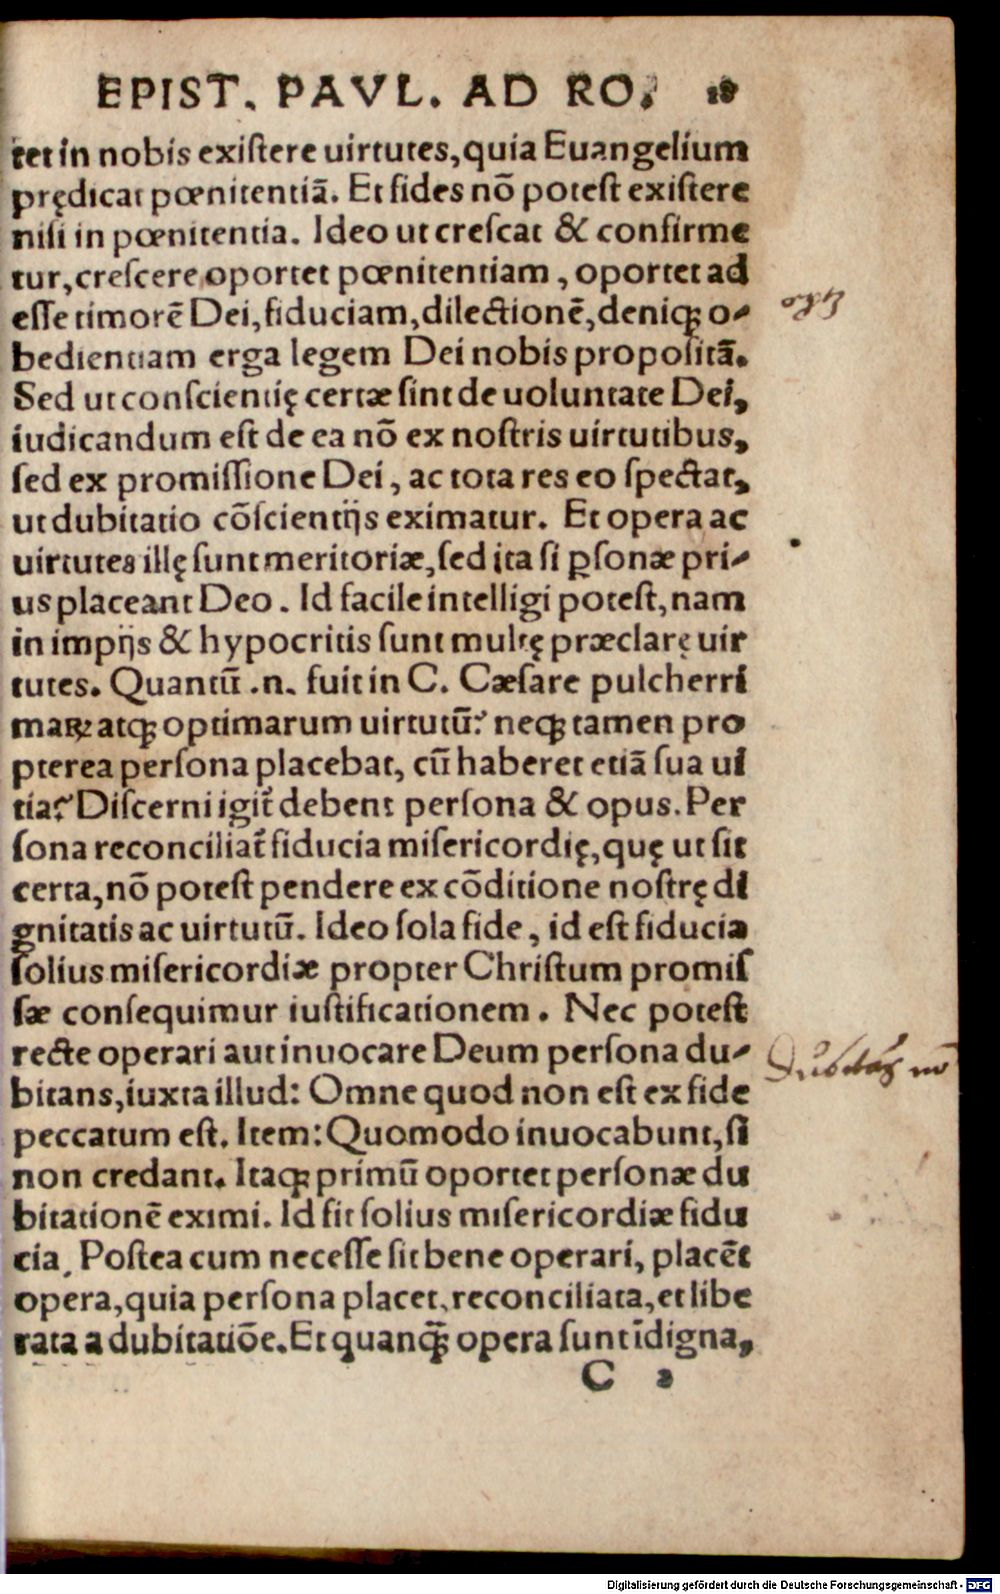 EPIST. PAVL. AD RO.
tet in nobis existere uirtutes, quia Euangelium
prędicat pœnitentiã. Et fides nõ potest existere
nisi in pœnitentia. Ideo ut crescat & confirme
tur, crescere oportet pœnitentiam, oportet ad
esse timorẽ Dei, fiduciam, dilectionẽ, deniq; o-
bedientiam erga legem Dei nobis propositã.
Sed ut conscientię certæ sint de uoluntate Dei,
iudicandum est de ea nõ ex nostris uirtutibus,
sed ex promissione Dei, ac tota res eo spectat,
ut dubitatio cõscientijs eximatur. Et opera ac
uirtutes illę sunt meritoriæ, sed ita si ꝑsonæ pri-
us placeant Deo. Id facile intelligi potest, nam
in impijs & hypocritis sunt multę præclarę uir
tutes. Quantũ .n. fuit in C. Cæsare pulcherri
maꝝ atq; optimarum uirtutũ? neq; tamen pro
pterea persona placebat, cũ haberet etiã sua ui
tia? Discerni igit̃ debent persona & opus. Per
sona reconciliat̃ fiducia misericordię, quę ut sit
certa, nõ potest pendere ex cõditione nostrę di
gnitatis ac uirtutũ. Ideo sola fide, id est fiducia
solius misericordiæ propter Christum promis
sæ consequimur iustificationem. Nec potest
recte operari aut inuocare Deum persona du-
bitans, iuxta illud: Omne quod non est ex fide
peccatum est. Item: Quomodo inuocabunt, si
non credant. Itaq; primũ oportet personæ du
bitationẽ eximi. Id fit solius misericordiæ fidu
cia. Postea cum necesse sit bene operari, placẽt
opera, quia persona placet, reconciliata, et libe
rata a dubitatiõe. Et quanq̃; opera sunt ĩdigna,
C 2
Digitalisierung gefördert durch die Deutsche Forschungsgemeinschaft - DFG